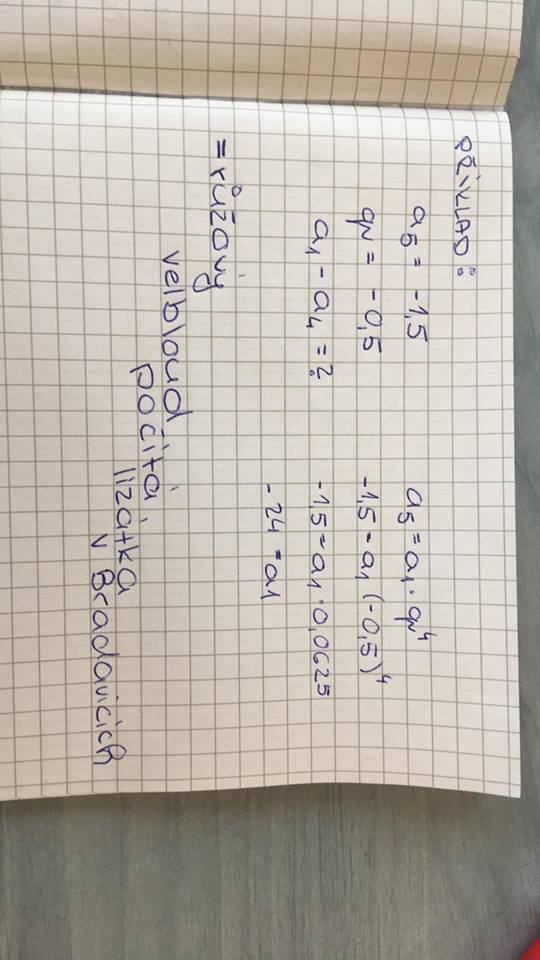 PŘÍKLAD:
a5 = -1,5
q = -0,5
a1 - a4 = ?
a5 = a1 · q^4
-1,5 = a1 (-0,5)^4
-1,5 = a1 · 0,0625
-24 = a1
= růžový
velbloud
počítá
lízátka
v Bradavicích